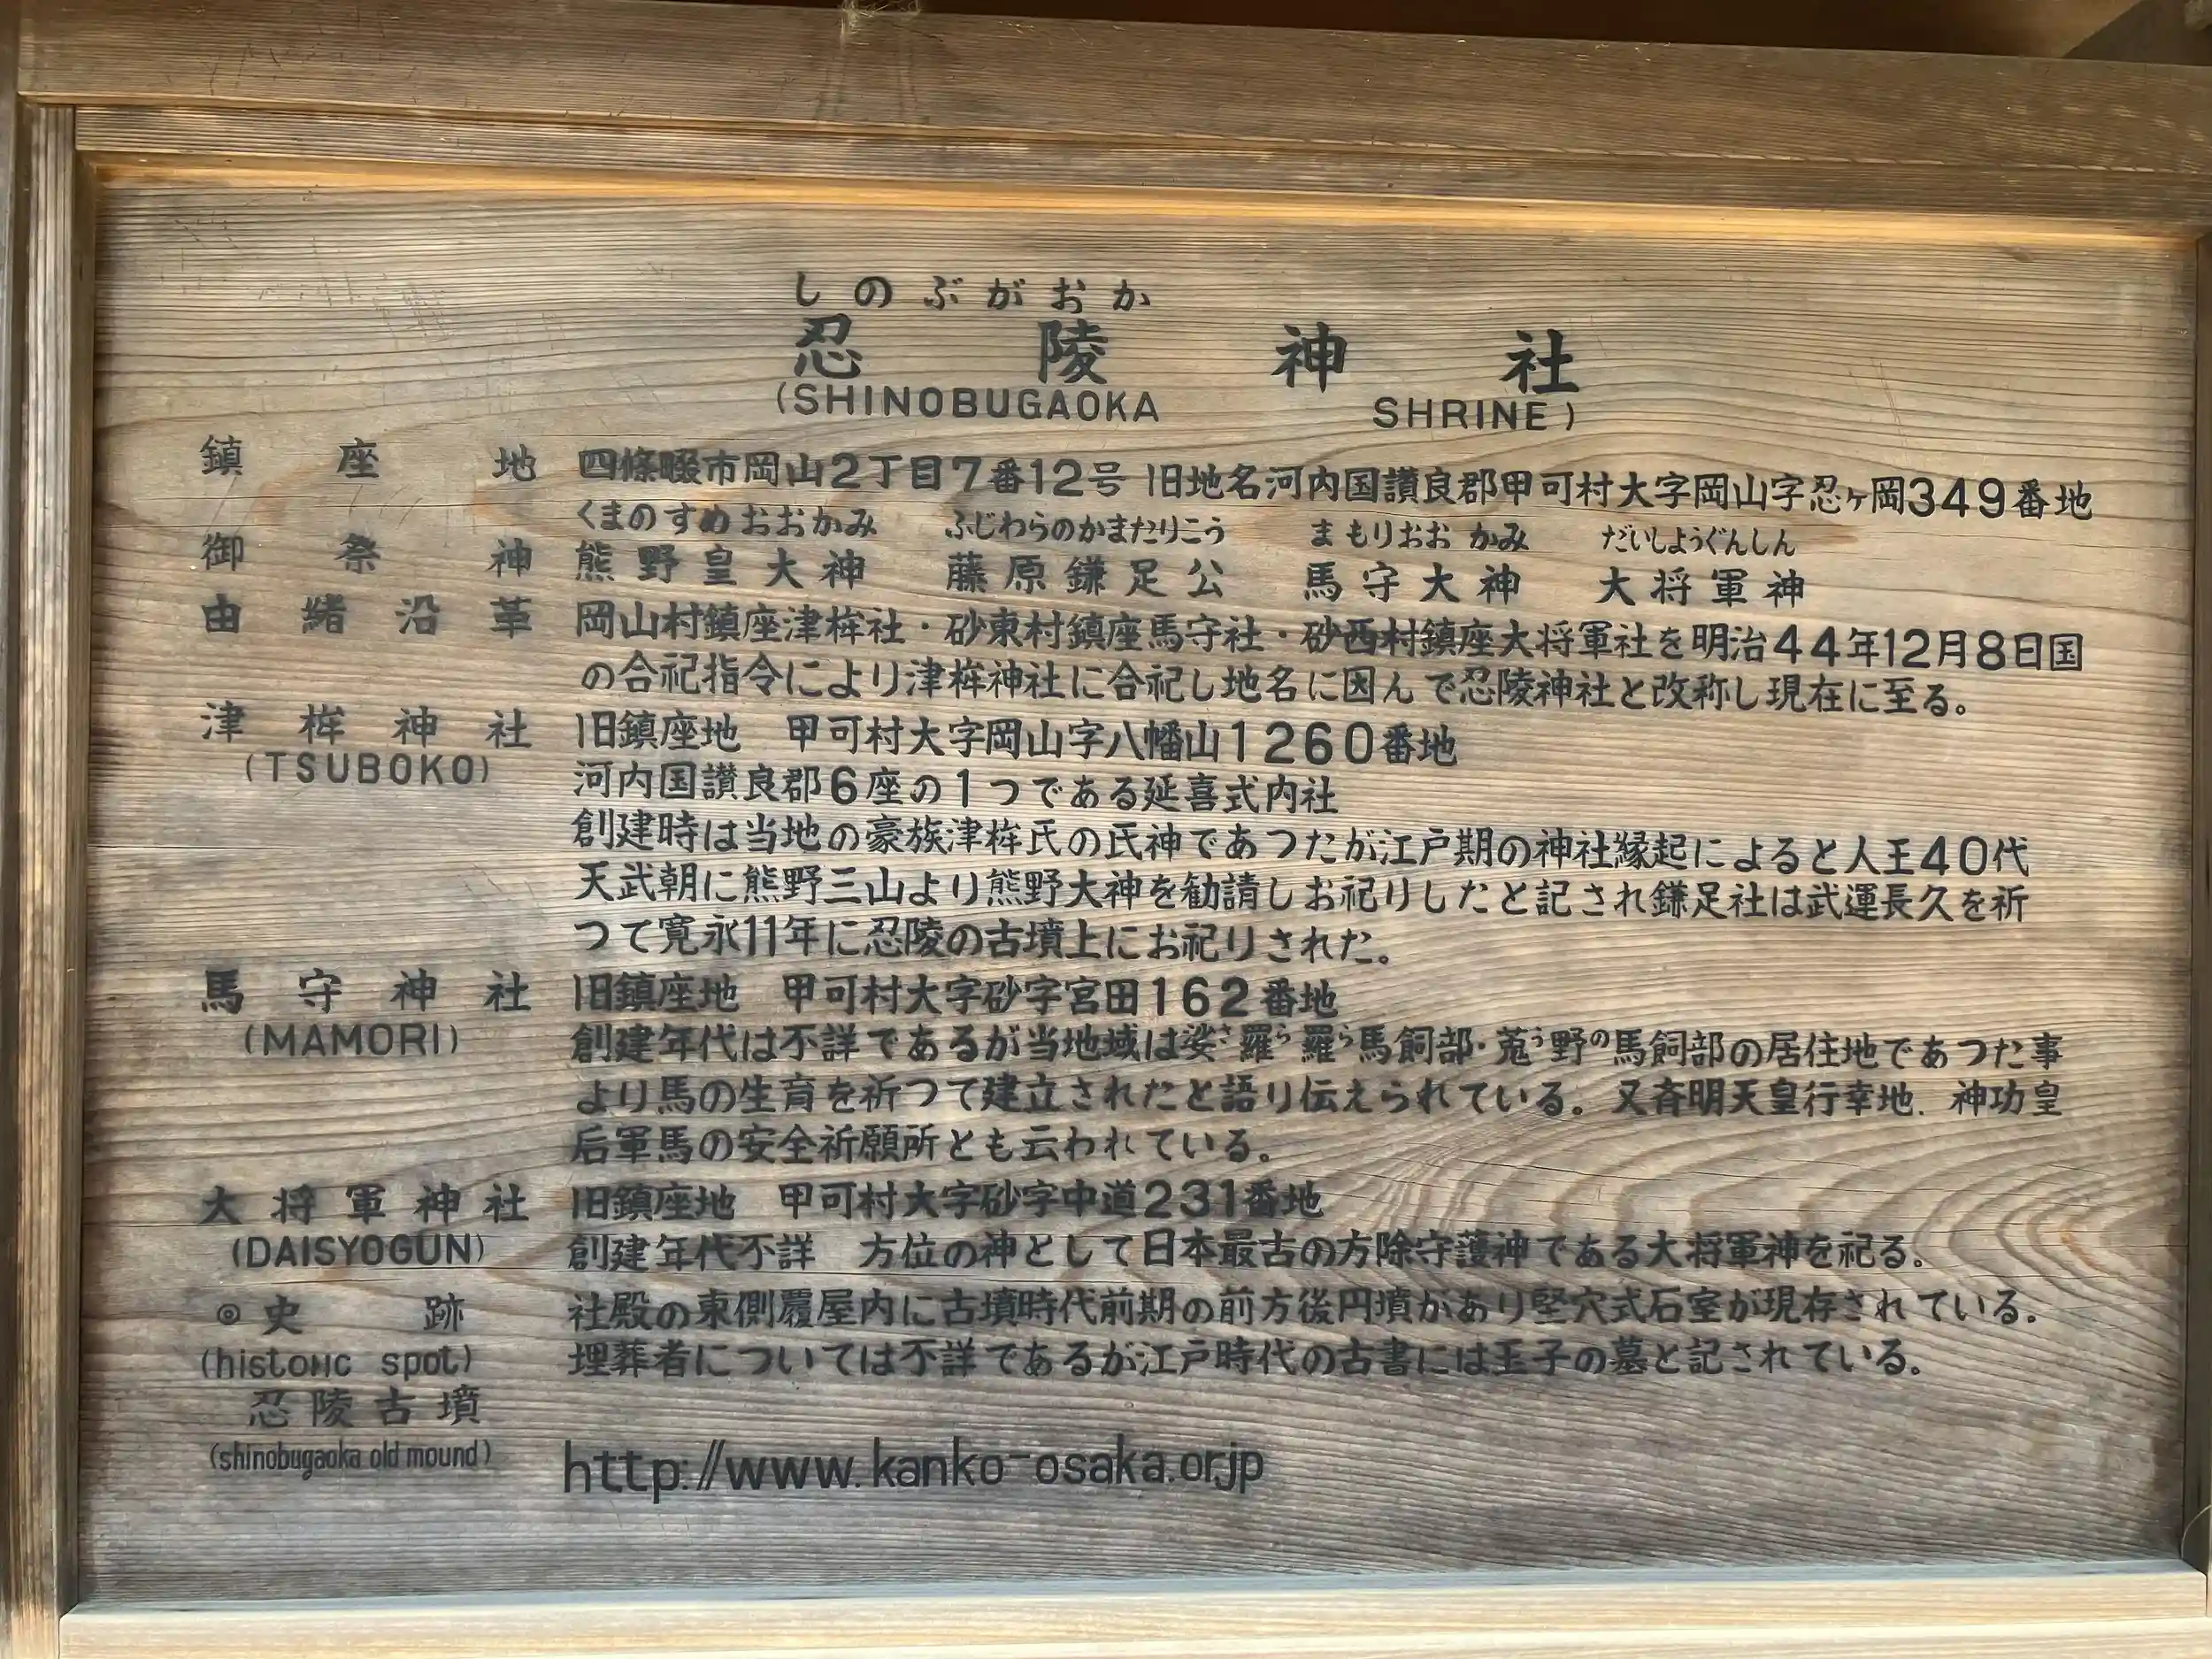 しのぶがおか
忍陵神社
(SHINOBUGAOKA SHRINE)
鎮座地 四條畷市岡山2丁目7番12号 旧地名河内国讃良郡甲可村大字岡山字忍ヶ岡349番地
くまのすめおおかみ ふじわらのかまたりこう まもりおおかみ だいしようぐんしん
御祭神 熊野皇大神 藤原鎌足公 馬守大神 大将軍神
由緒沿革 岡山村鎮座津桙社・砂東村鎮座馬守社・砂西村鎮座大将軍社を明治44年12月8日国
の合祀指令により津桙神社に合祀し地名に因んで忍陵神社と改称し現在に至る。
津桙神社 旧鎮座地 甲可村大字岡山字八幡山1260番地
(TSUBOKO) 河内国讃良郡6座の1つである延喜式内社
創建時は当地の豪族津桙氏の氏神であつたが江戸期の神社縁起によると人王40代
天武朝に熊野三山より熊野大神を勧請しお祀りしたと記され鎌足社は武運長久を祈
つて寛永11年に忍陵の古墳上にお祀りされた。
馬守神社 旧鎮座地 甲可村大字砂字宮田162番地
(MAMORI) 創建年代は不詳であるが当地域は娑さ羅ら羅ら馬飼部・菟う野の馬飼部の居住地であつた事
より馬の生育を祈つて建立されたと語り伝えられている。又斉明天皇行幸地、神功皇
后軍馬の安全祈願所とも云われている。
大将軍神社 旧鎮座地 甲可村大字砂字中道231番地
(DAISYOGUN) 創建年代不詳 方位の神として日本最古の方除守護神である大将軍神を祀る。
◎史跡 社殿の東側覆屋内に古墳時代前期の前方後円墳があり竪穴式石室が現存されている。
(historic spot) 埋葬者については不詳であるが江戸時代の古書には王子の墓と記されている。
忍陵古墳
(shinobugaoka old mound) http://www.kanko-osaka.or.jp